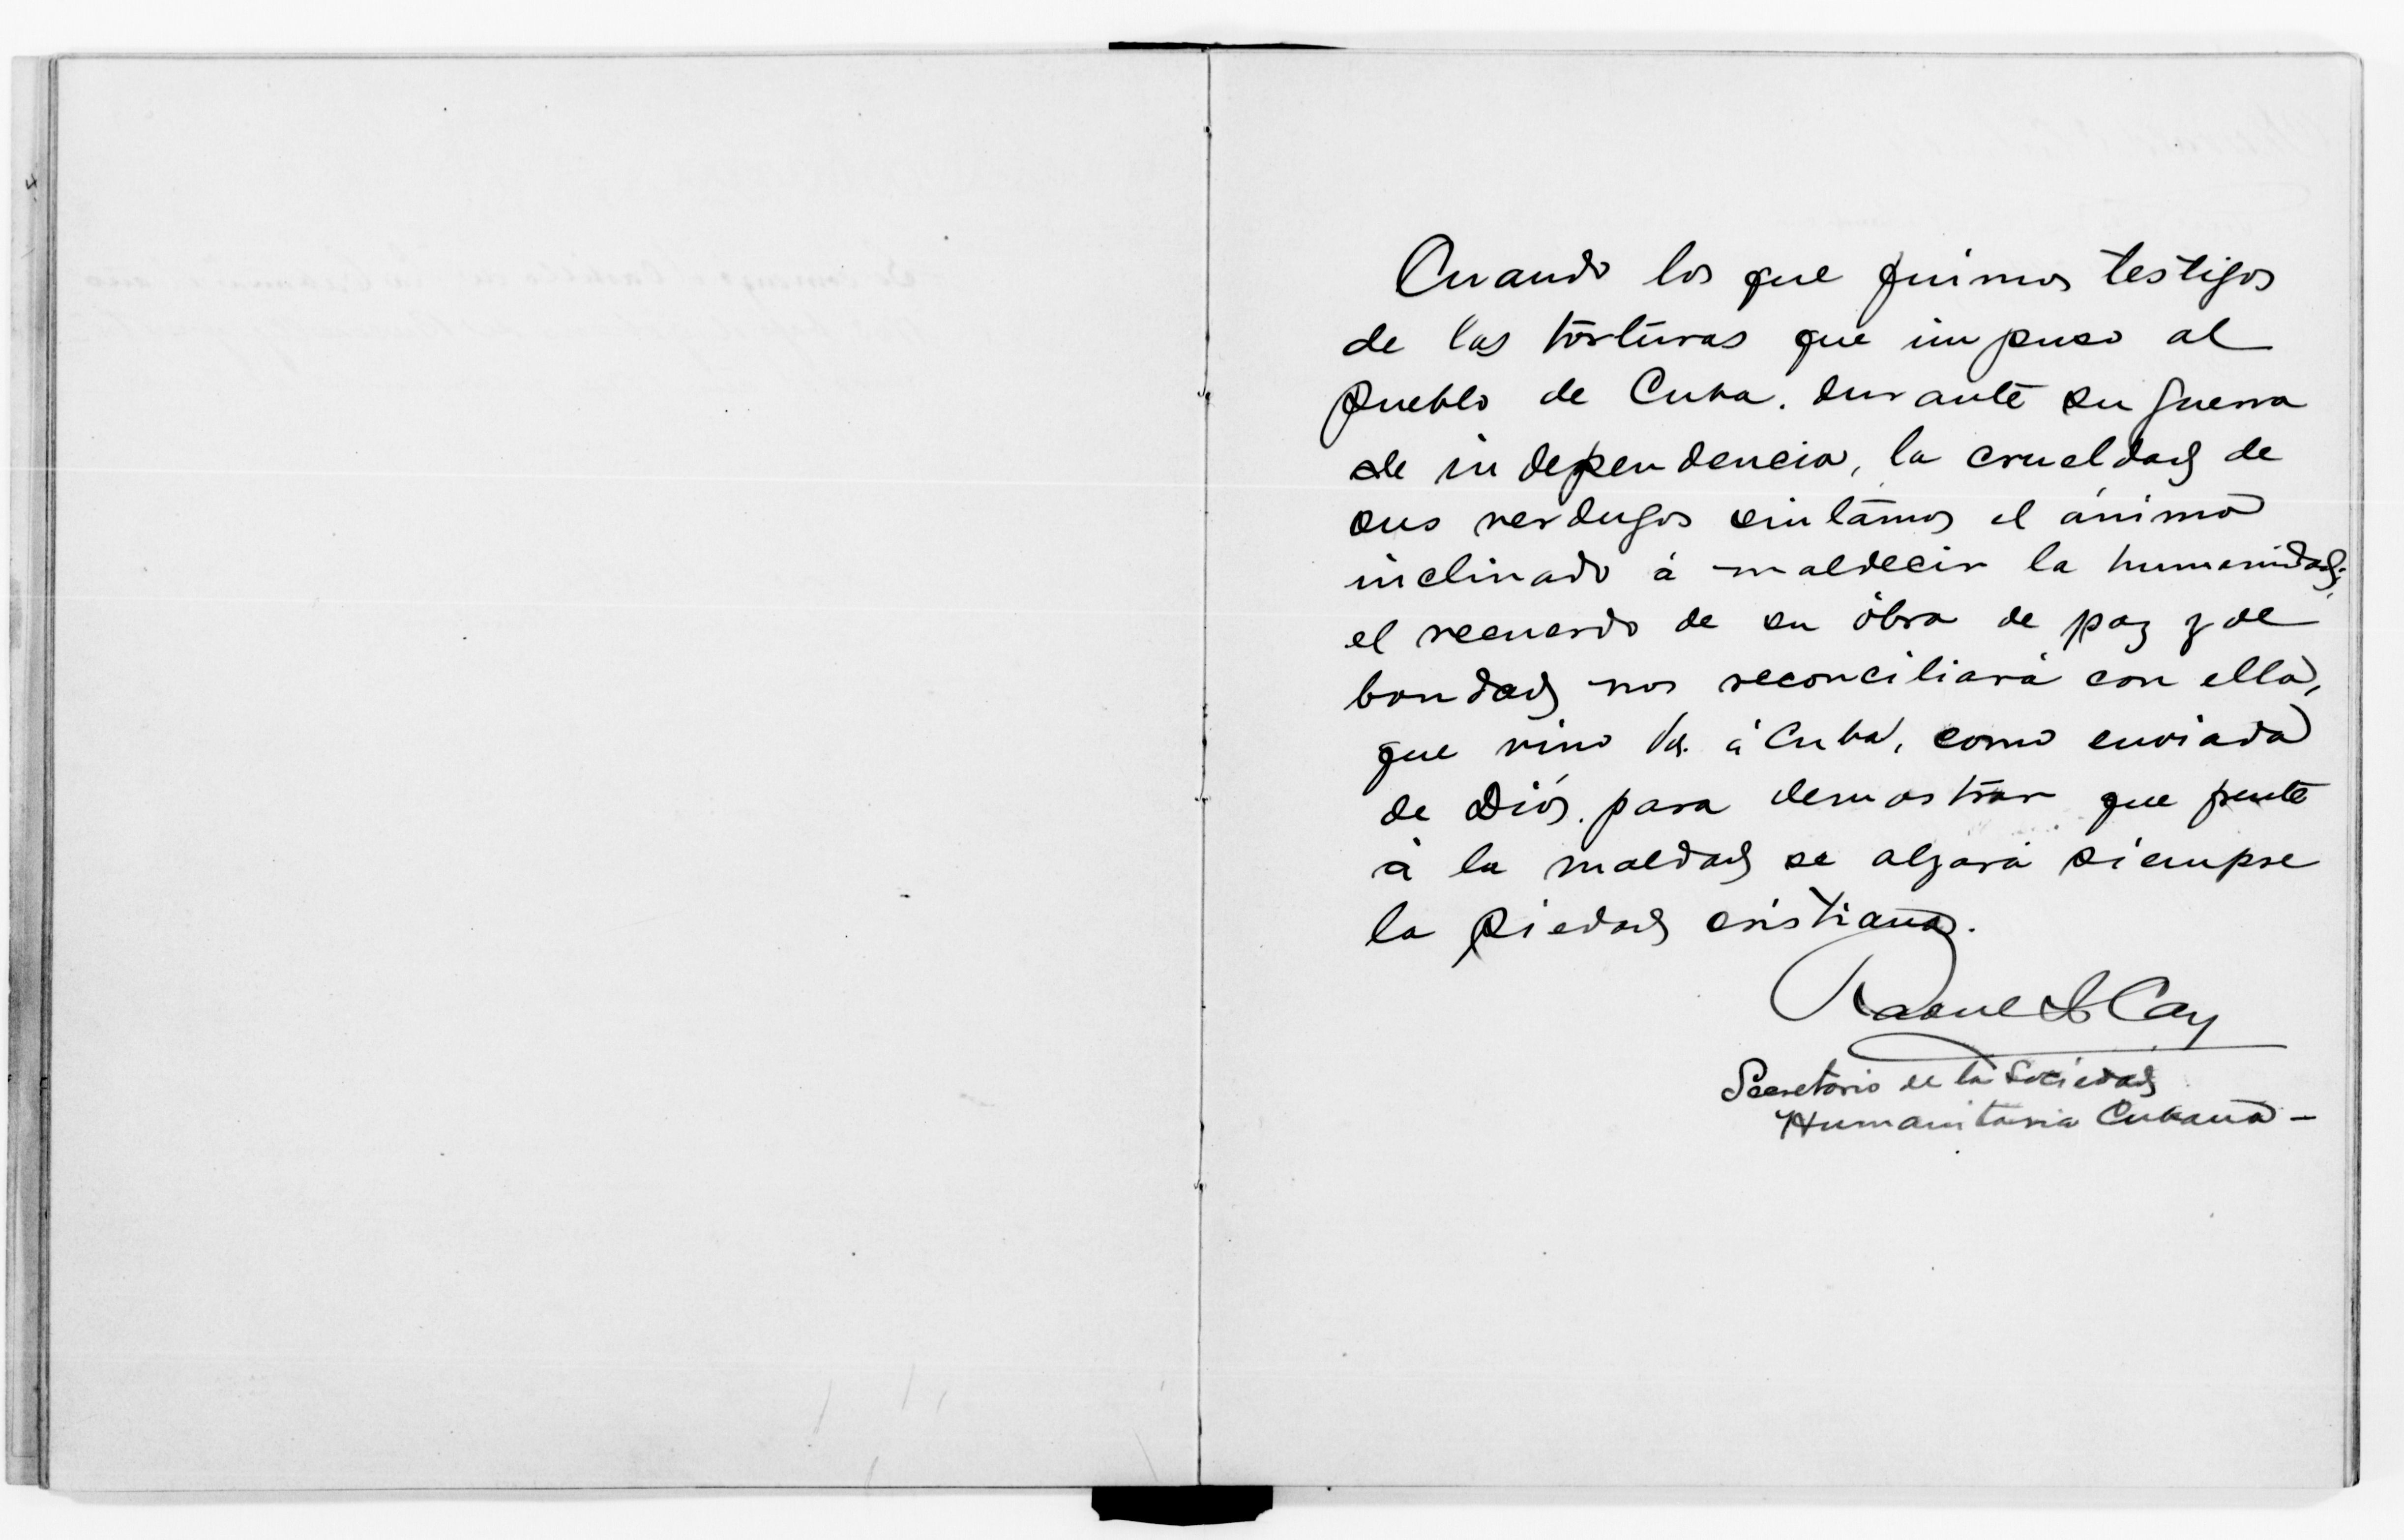 Cuando los que fuimos testigos
de las torturas que impuso al
pueblo de Cuba. durante su guerra
de independencia, la crueldad de
sus verdugos sintámos el ánimo
inclinado á maldecir la humanidad;
el recuerdo de su obra de paz y de
bondad nos reconciliará con ella,
que vino Vd. á Cuba, como enviada
de Diós. para demostrar que frente
á la maldad se alzará siempre
la piedad cristiana.
Raoul Cay
Secretario de la Sociedad
Humanitaria Cubana -